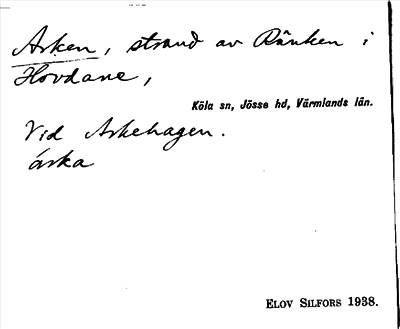 Arken, strand av Ränken i
Hovdane,
Köla sn, Jösse hd, Värmlands län.
Vid Arkehagen.
árka
ELOV SILFORS 1938.